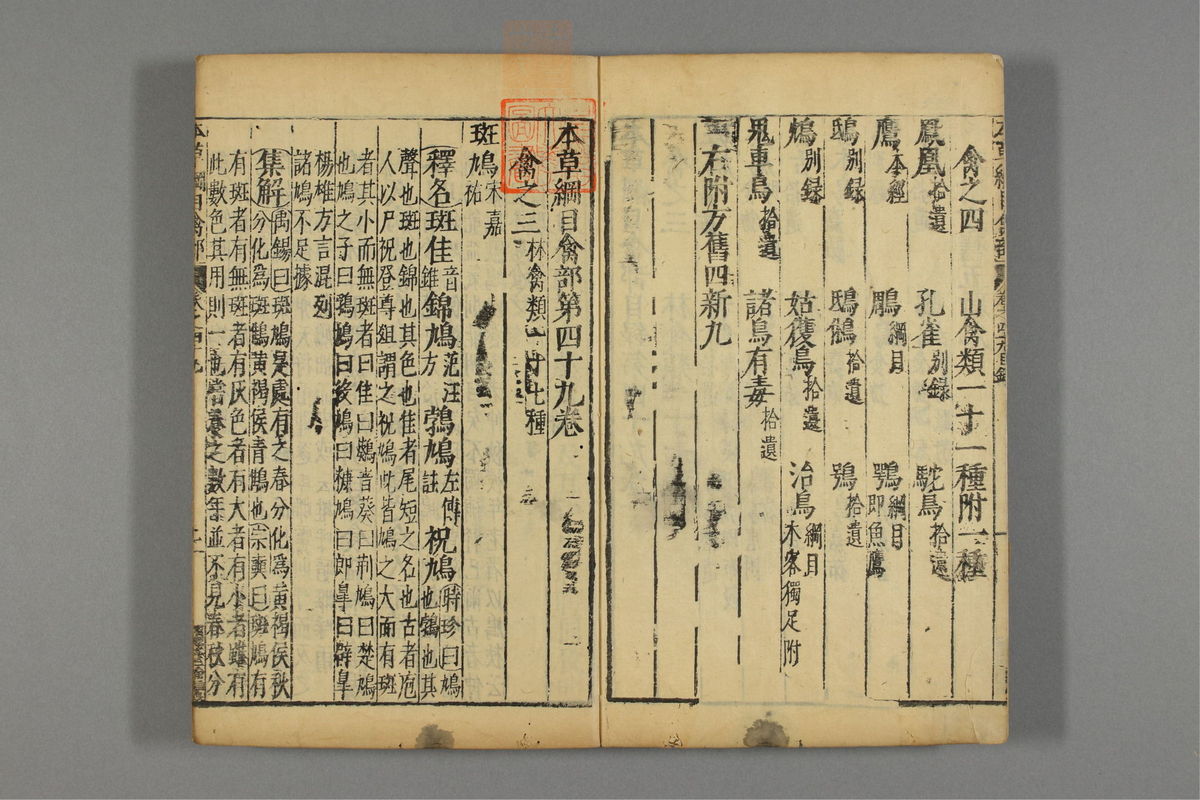 禽之四 山禽類一十二種附一種
鳳凰拾遺 孔雀别録 駝鳥拾遺
鷹本經 鵰綱目 鶚綱目即魚鷹
鴟别録 鴟鵂拾遺 鴞拾遺
鴆别録 姑獲鳥拾遺 治鳥綱目木客獨足附
鬼車鳥拾遺 諸鳥有毒拾遺
右附方舊四新九
本草綱目禽部第四十九卷
禽之三 林禽類一十七種
斑鳩宋嘉祐
釋名斑隹音錐錦鳩范汪方鵓鳩左傳註祝鳩時珍曰鳩也鶻也其
聲也斑也錦也其色也隹者尾短之名也古者庖
人以尸祝登尊俎謂之祝鳩此皆鳩之大而有斑
者其小而無斑者曰隹曰鷑音葵曰荊鳩曰楚鳩
也鳩之子曰鳩曰役鳩曰糠鳩曰郎皐曰辟皐
楊雄方言混列
諸鳩不足據
集解禹錫曰斑鳩是處有之春分化為黃褐侯秋
分化為斑鶻黃褐侯青鵻也宗奭曰斑鳩有
有斑者有無斑者有灰色者有大者有小者雖有
此數色其用則一也嘗養之數年並不見春秋分